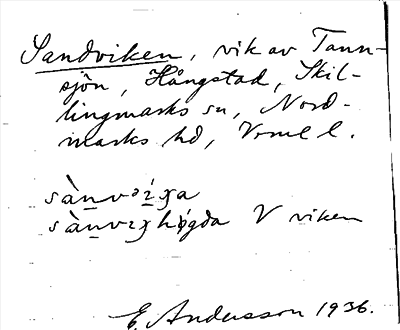 Sandviken, vik av Tann-
sjön, Hångstad, Skil-
lingmarks sn, Nord-
marks hd, Vrml l.
sànvəíɡa
sànvɪɡhøgda V viken
E. Andersson 1936.